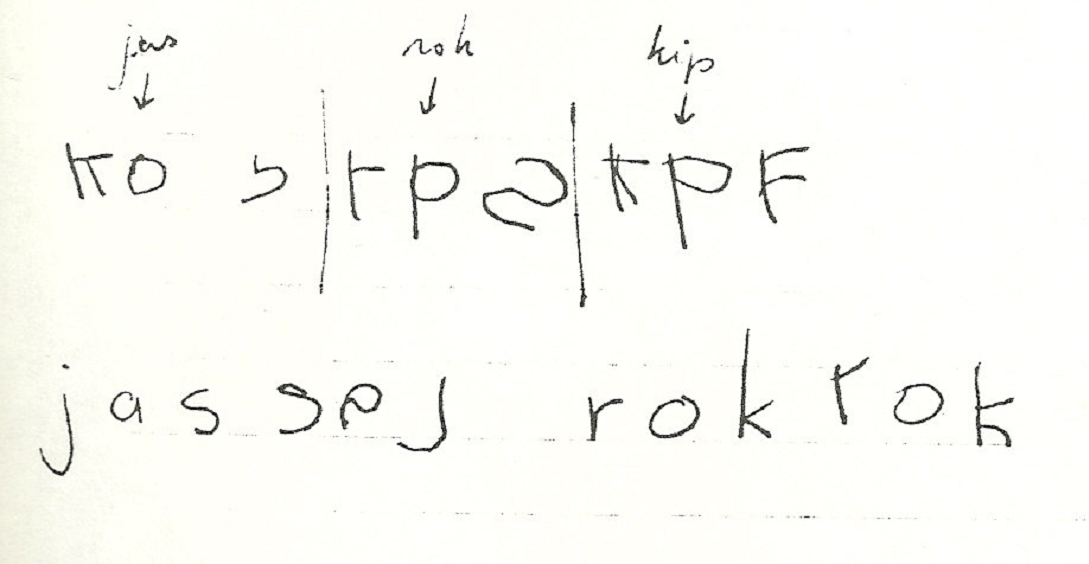 jas rok kip
KO s | rps | kpF
jas sej rok rok